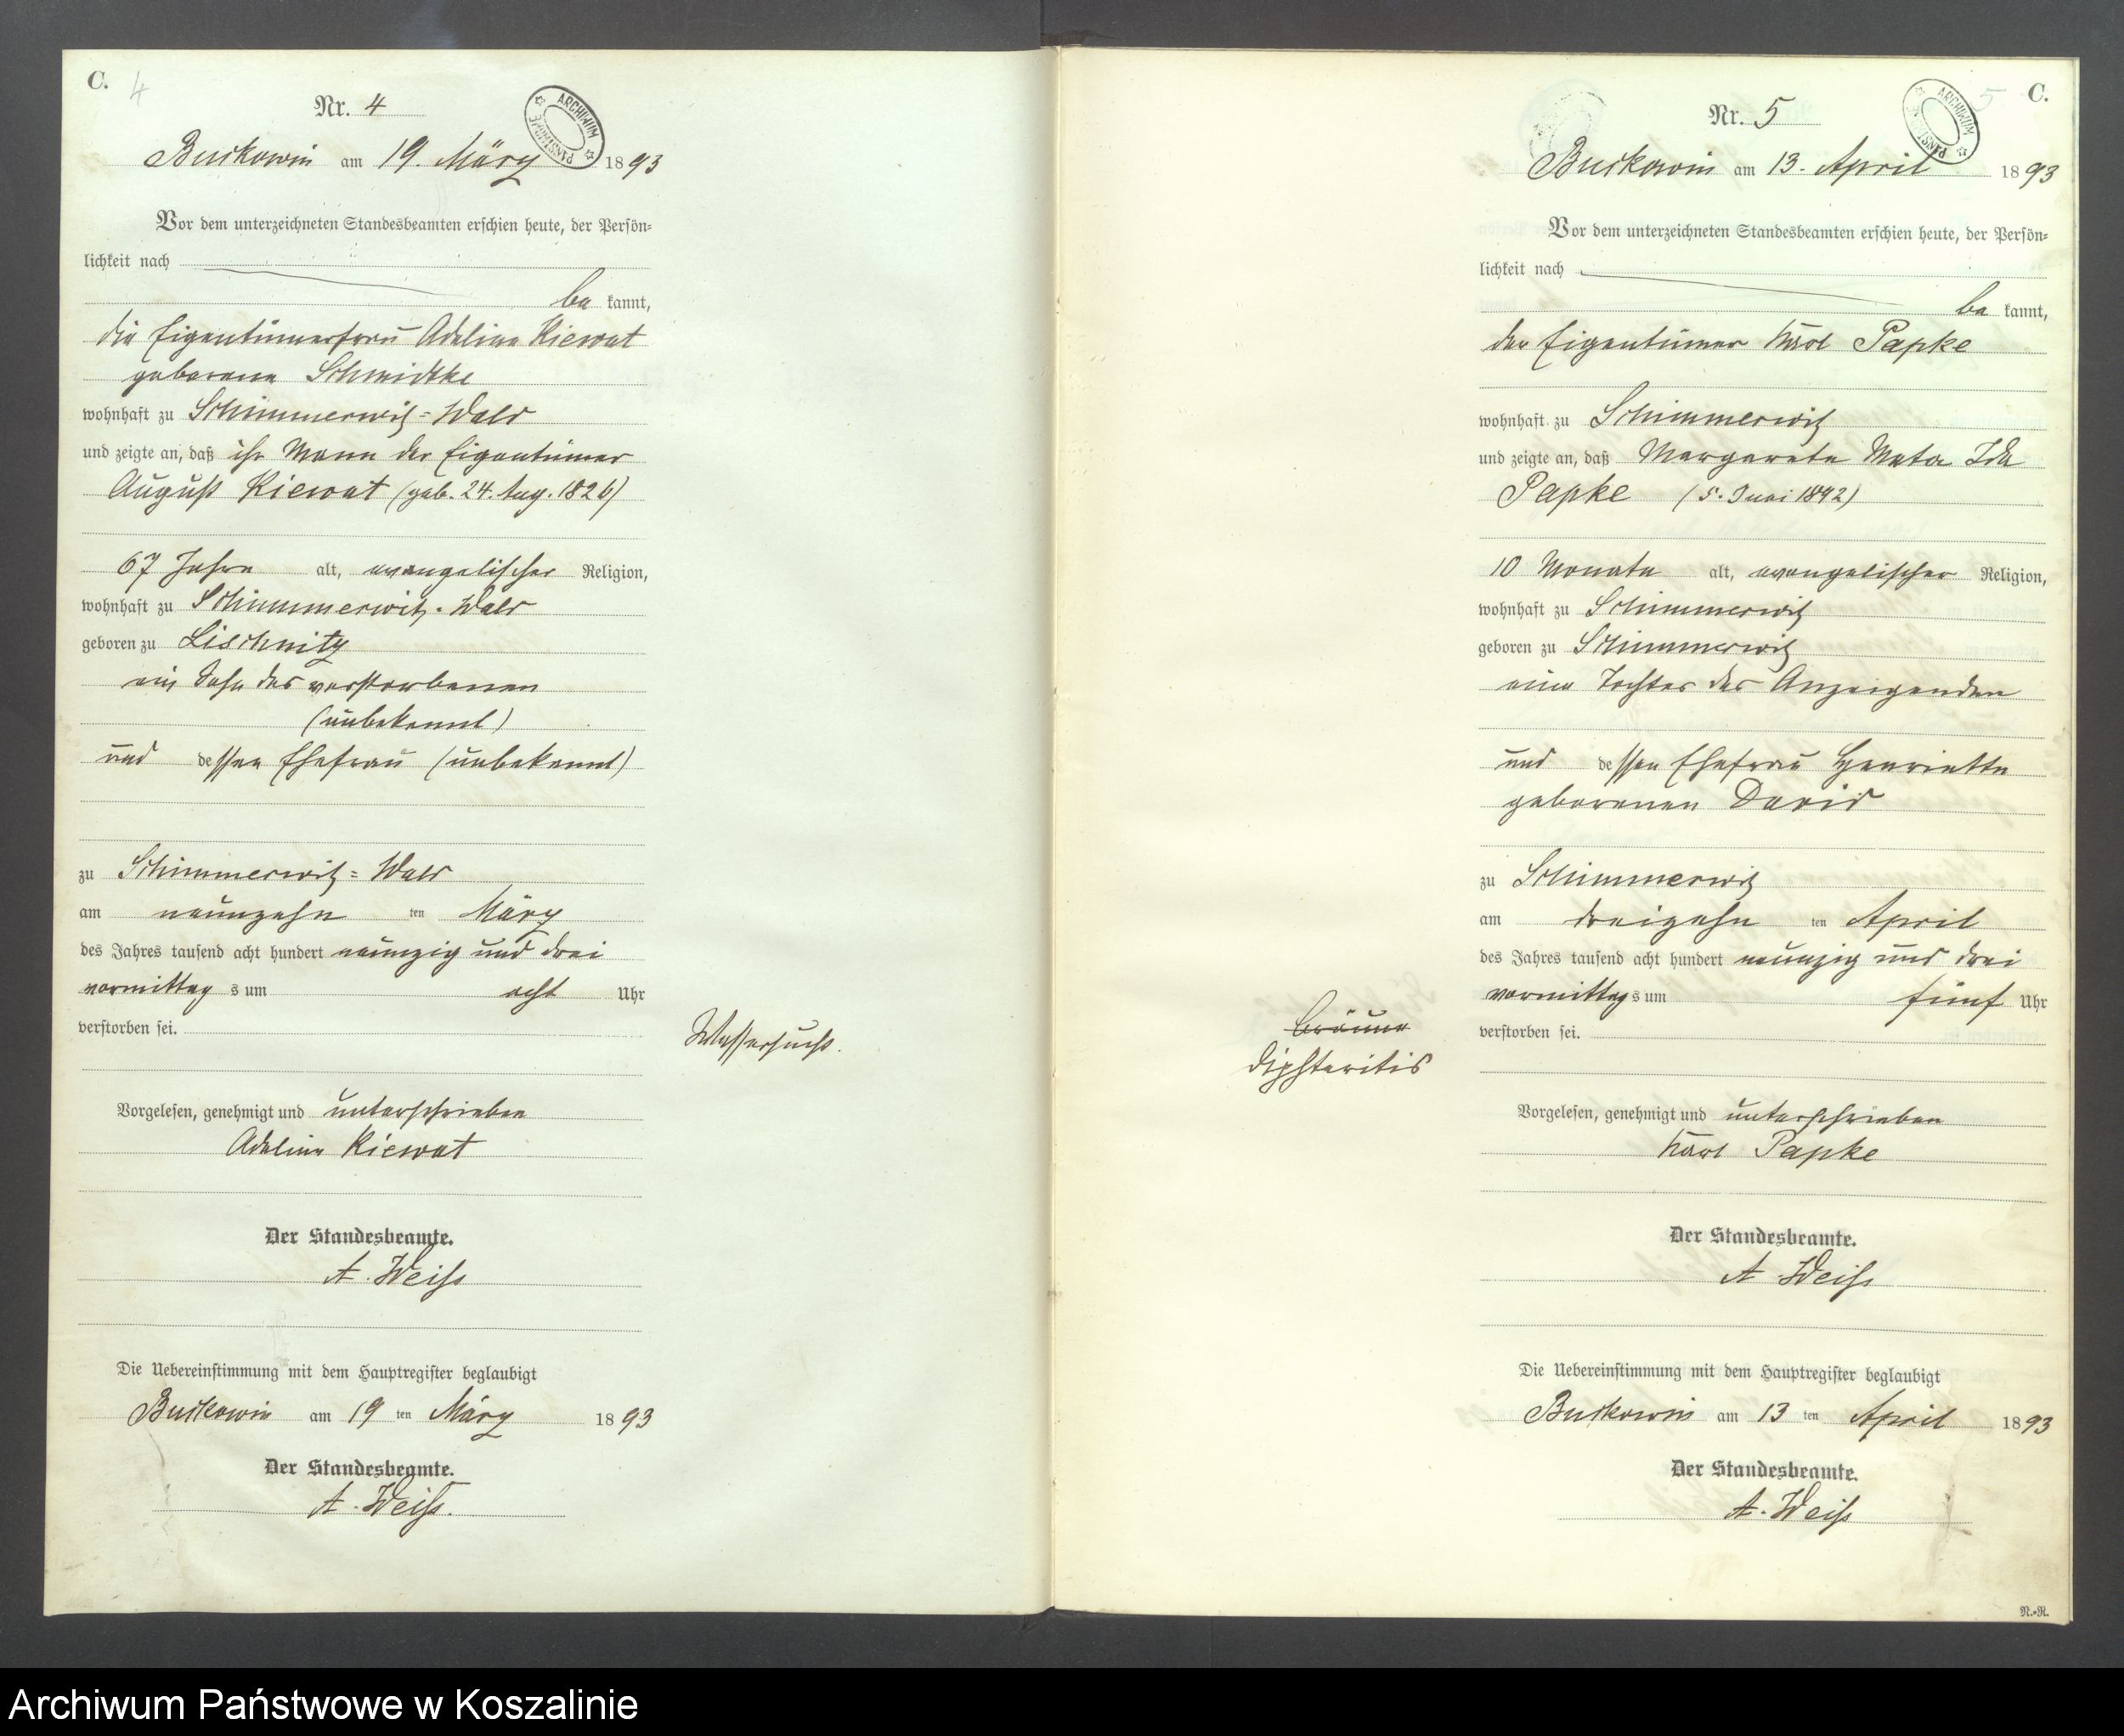 C. 4
Nr. 4
ARCHIWUM PAŃSTWOWE
Buckowin am 19. März 1893
Vor dem unterzeichneten Standesbeamten erschien heute, der Persön=
lichkeit nach
be kannt,
die Eigentümerfrau Adeline Kiewat
geborene Schmidtke
wohnhaft zu Schimmerwitz=Wald
und zeigte an, daß ihr Mann der Eigentümer
August Kiewat (geb. 24. Aug. 1826)
67 Jahre alt, evangelischer Religion,
wohnhaft zu Schimmerwitz=Wald
geboren zu Lischnitz
ein Sohn des verstorbenen
(unbekannt)
und dessen Ehefrau (unbekannt)
zu Schimmerwitz=Wald
am neunzehn ten März
des Jahres tausend acht hundert neunzig und drei
vormittag s um acht Uhr
verstorben sei.
Wassersucht.
Vorgelesen, genehmigt und unterschrieben
Adeline Kiewat
Der Standesbeamte.
A. Weiss
Die Uebereinstimmung mit dem Hauptregister beglaubigt
Buckowin am 19 ten März 1893
Der Standesbeamte.
A. Weiss.
5 C.
Nr. 5
ARCHIWUM PAŃSTWOWE
Buckowin am 13. April 1893
Vor dem unterzeichneten Standesbeamten erschien heute, der Persön=
lichkeit nach
be kannt,
der Eigentümer Karl Papke
wohnhaft zu Schimmerwitz
und zeigte an, daß Margarete Meta Ida
Papke (5. Juni 1892)
10 Monate alt, evangelischer Religion,
wohnhaft zu Schimmerwitz
geboren zu Schimmerwitz
eine Tochter des Anzeigenden
und dessen Ehefrau Henriette
geborenen David
zu Schimmerwitz
am dreizehn ten April
des Jahres tausend acht hundert neunzig und drei
vormittag s um fünf Uhr
verstorben sei.
Bräune
Diphteritis
Vorgelesen, genehmigt und unterschrieben
Karl Papke
Der Standesbeamte.
A. Weiss
Die Uebereinstimmung mit dem Hauptregister beglaubigt
Buckowin am 13 ten April 1893
Der Standesbeamte.
A. Weiss
R.=R.
Archiwum Państwowe w Koszalinie